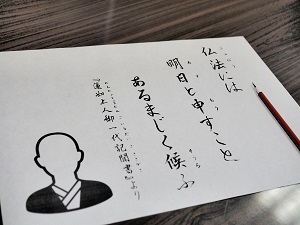 仏法には
明日と申すこと
あるまじく候ふ
『蓮如上人御一代記聞書』より